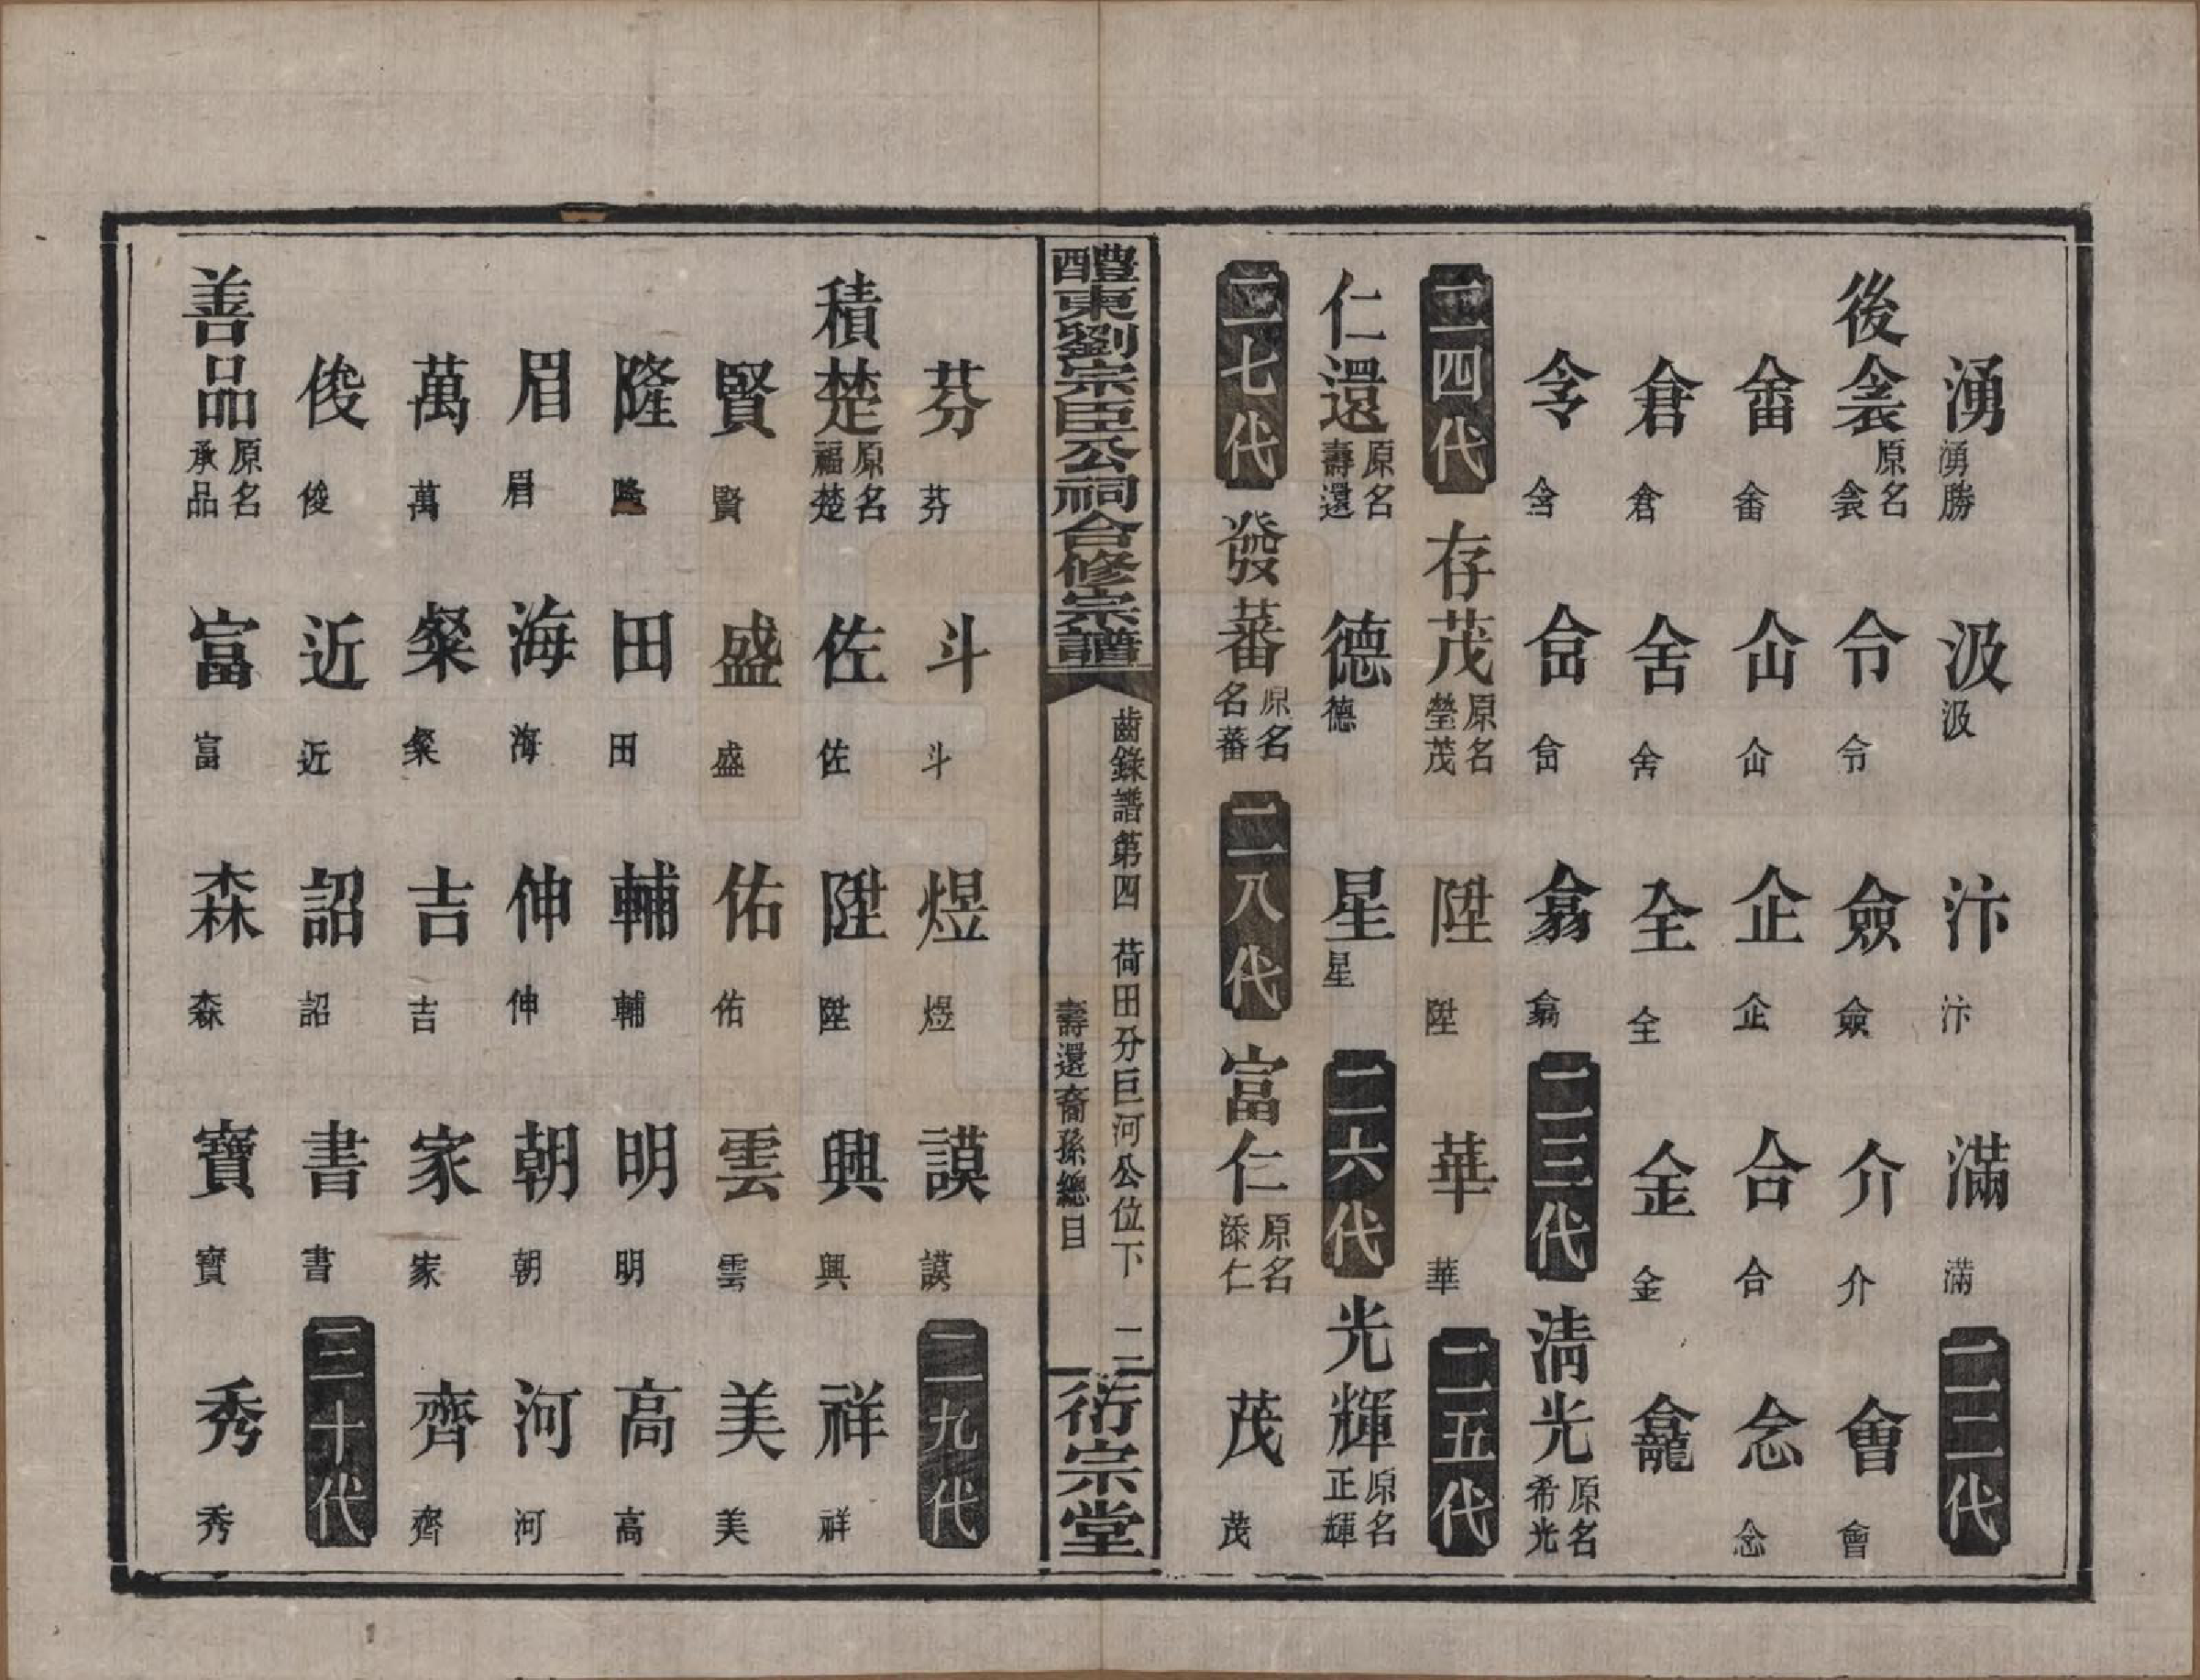 湧 湧勝 汲 汲 汴 汴 滿 滿 二二代
後衾 原名衾 令 令 僉 僉 介 介 會 會
畬 畬 仚 仚 企 企 合 合 念 念
倉 倉 舍 舍 全 全 金 金 龕
含 含 龠 翕 翕 二三代 清光 原名希光
二四代 存茂 原名瑩茂 陞 陞 華 華 二五代
仁還 原名壽還 德 德 星 星 二六代 光輝 原名正輝
二七代 發蕃 原名名蕃 二八代 富仁 原名添仁 茂 茂
醴東劉宗臣公祠合修宗譜
齒錄譜第四 荷田分巨河公位下 二
壽還裔孫總目
衍宗堂
芬 芬 斗 斗 煜 煜 謨 謨 二九代
積楚 原名福楚 佐 佐 陞 陞 興 興 祥 祥
賢 賢 盛 盛 佑 佑 雲 雲 美 美
隆 隆 田 田 輔 輔 明 明 高 高
眉 眉 海 海 伸 伸 朝 朝 河 河
萬 萬 粲 粲 吉 吉 家 家 齊 齊
俊 俊 近 近 詔 詔 書 書 三十代
善品 原名承品 富 富 森 森 寶 寶 秀 秀